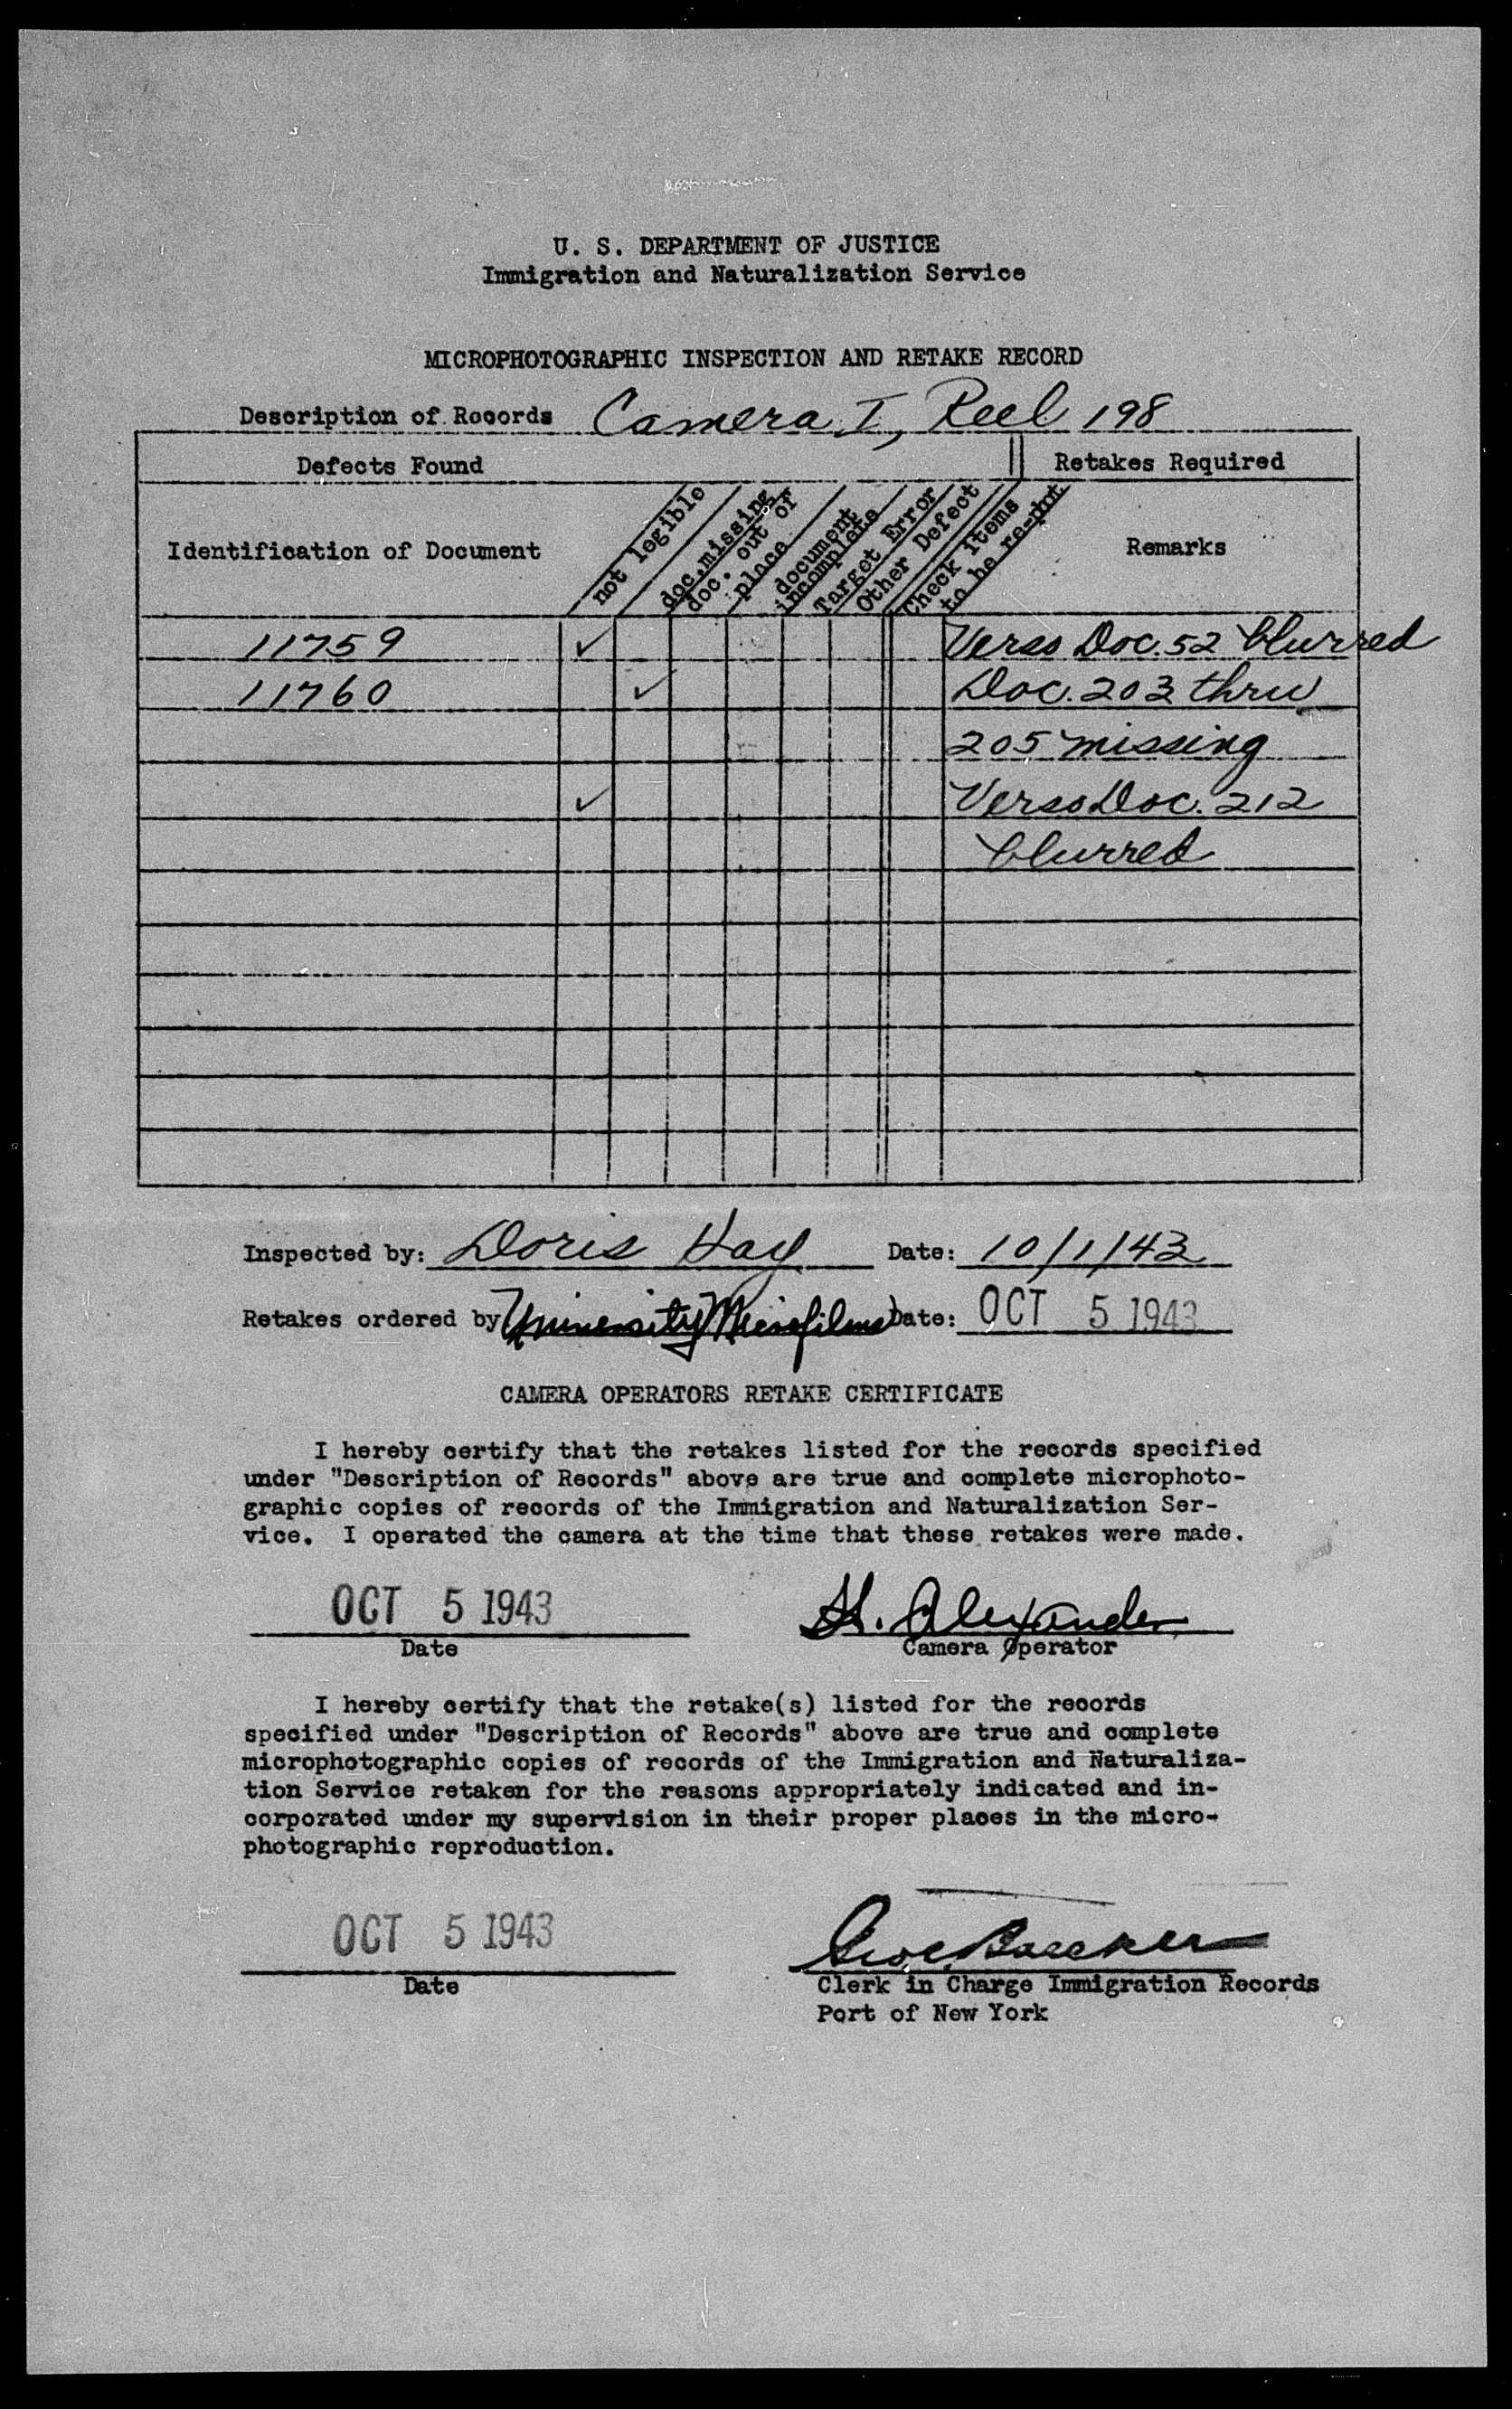 U. S. DEPARTMENT OF JUSTICE
Immigration and Naturalization Service
MICROPHOTOGRAPHIC INSPECTION AND RETAKE RECORD
Description of Records Camera I, Reel 198
Defects Found Retakes Required
Identification of Document
not legible
doc. missing
doc. out of
place
document
incomplete
Target Error
Other Defect
Check items
to be re-phot
Remarks
11759 ✓ Verso Doc. 52 blurred
11760 ✓ Doc. 203 thru
205 missing
✓ Verso Doc. 212
blurred
Inspected by: Doris Hay Date: 10/1/43
Retakes ordered by University Microfilms Date: OCT 5 1943
CAMERA OPERATORS RETAKE CERTIFICATE
I hereby certify that the retakes listed for the records specified
under "Description of Records" above are true and complete microphoto-
graphic copies of records of the Immigration and Naturalization Ser-
vice. I operated the camera at the time that these retakes were made.
OCT 5 1943 H. Alexander
Date Camera Operator
I hereby certify that the retake(s) listed for the records
specified under "Description of Records" above are true and complete
microphotographic copies of records of the Immigration and Naturaliza-
tion Service retaken for the reasons appropriately indicated and in-
corporated under my supervision in their proper places in the micro-
photographic reproduction.
OCT 5 1943
Date Clerk in Charge Immigration Records
Port of New York